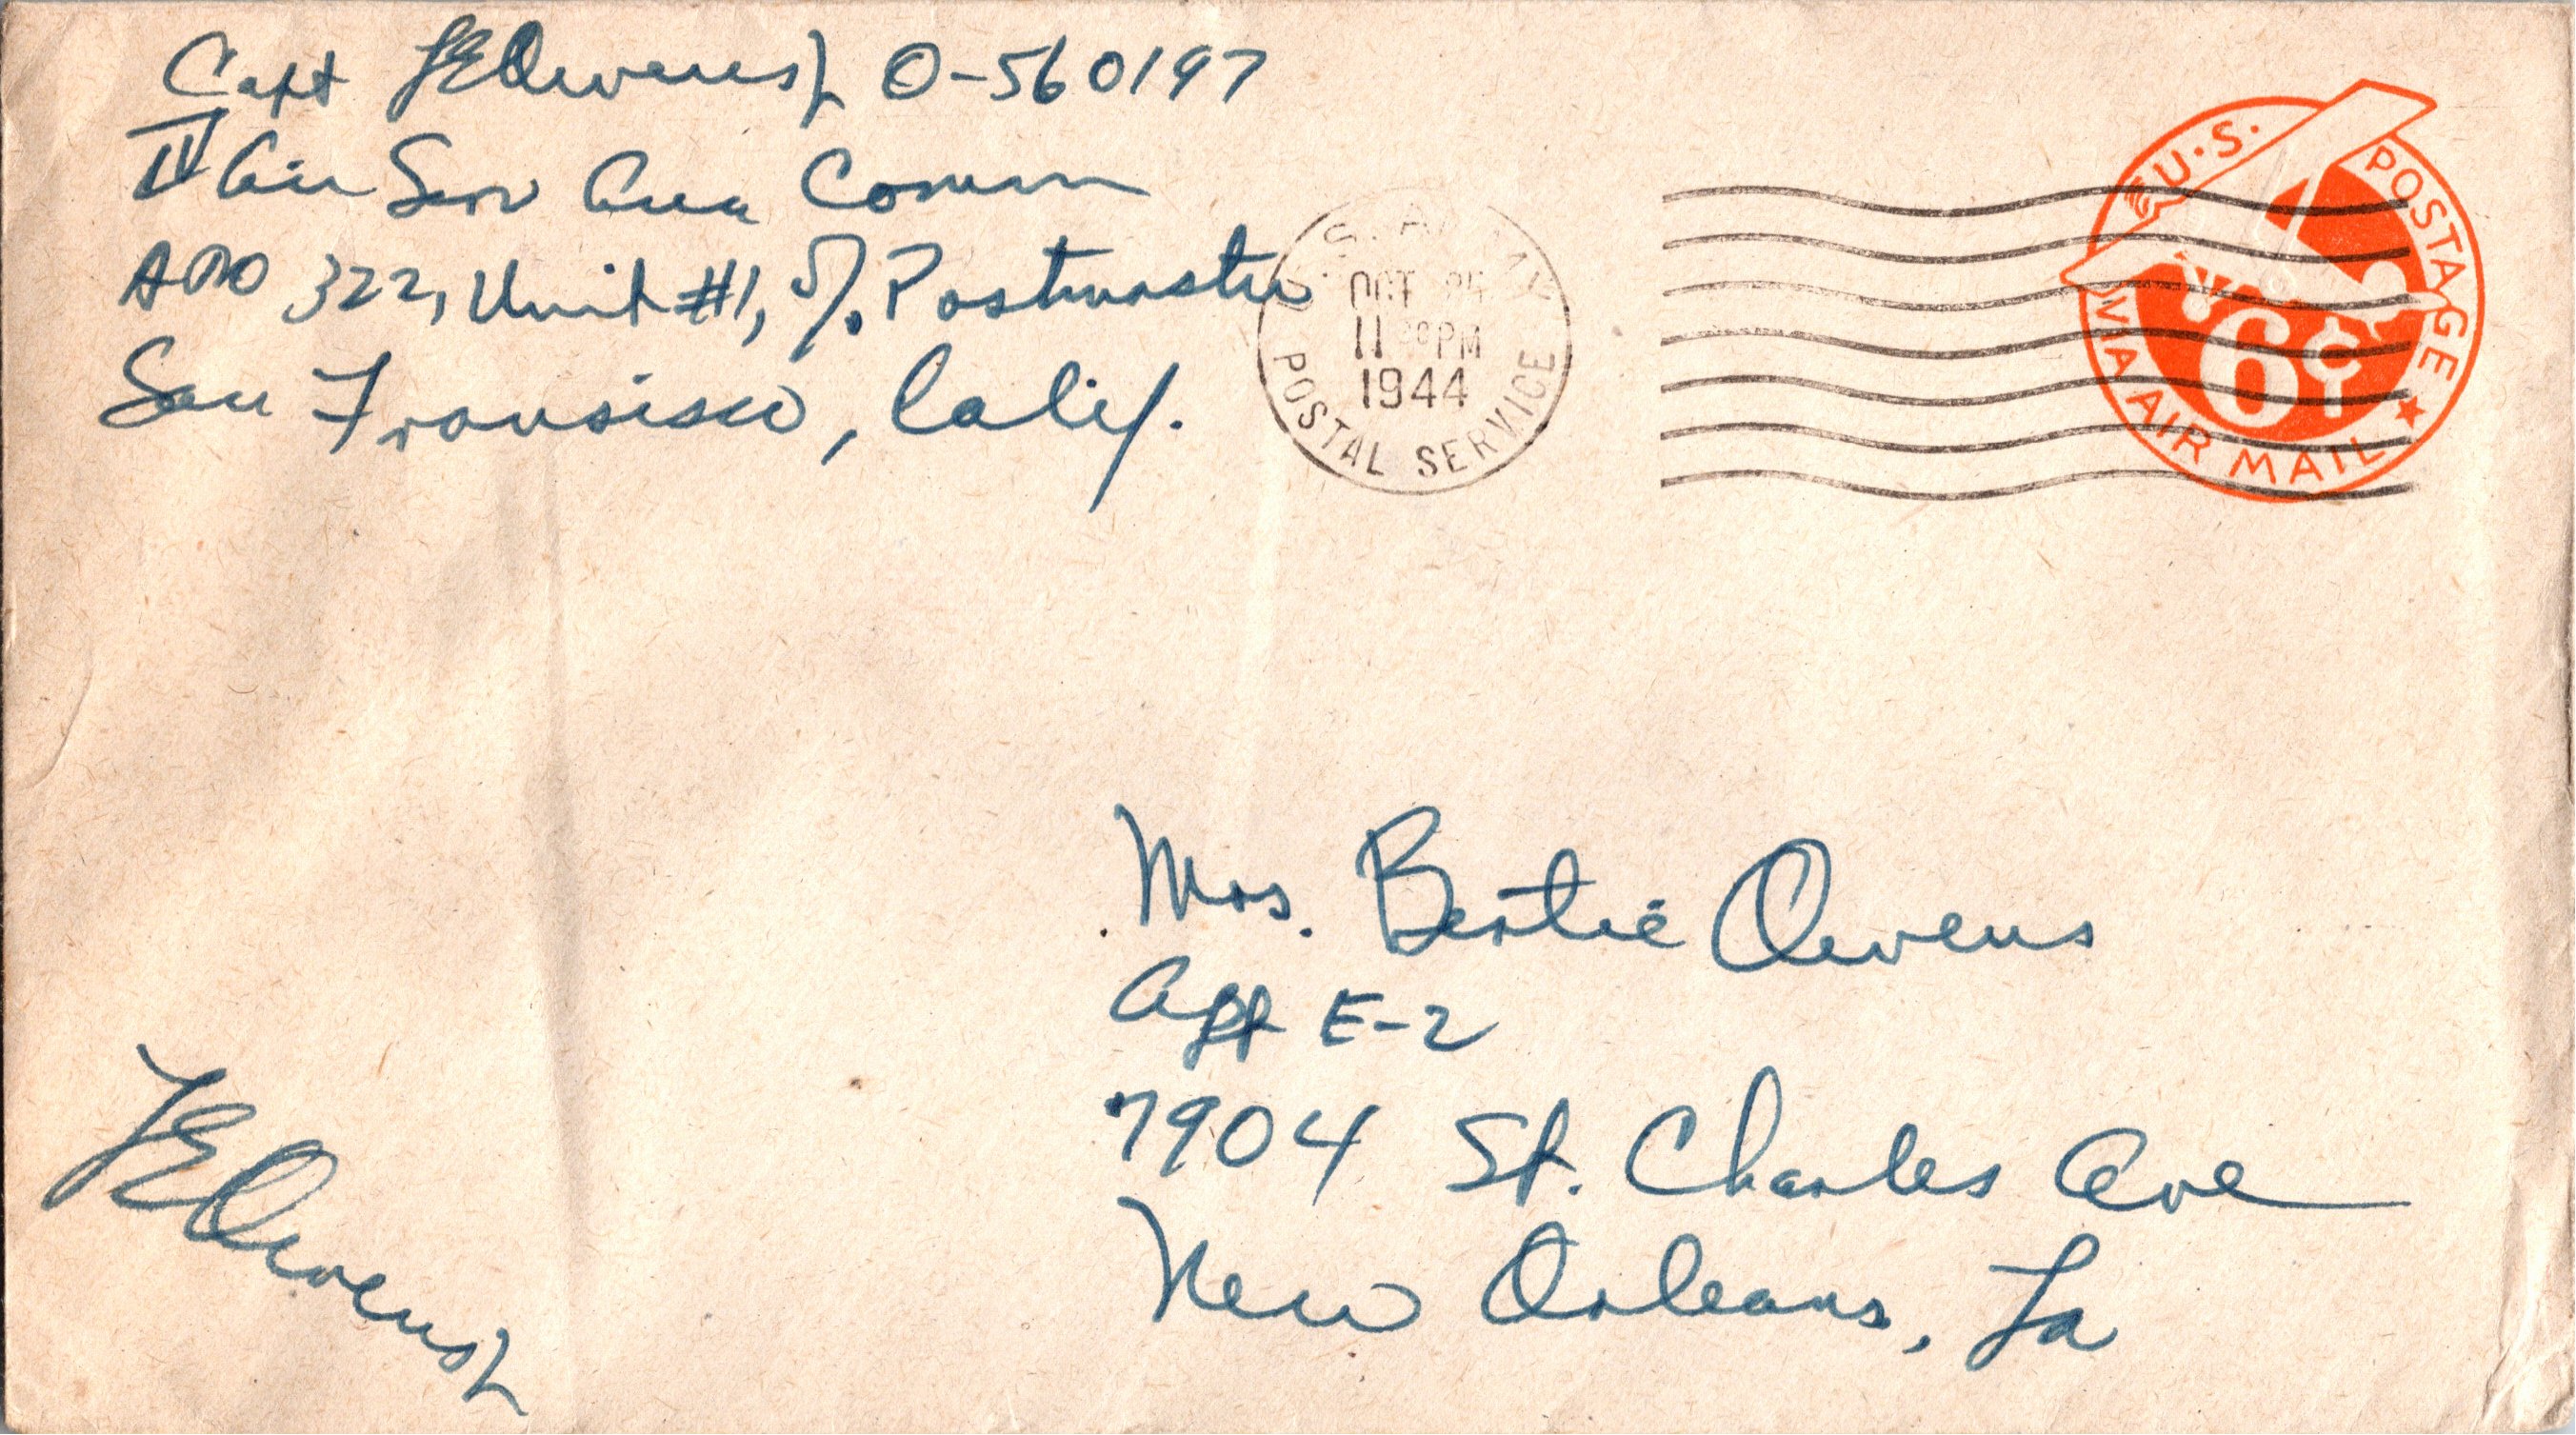 Capt JE Owens Jr O-560197
IV Air Serv Area Comm
APO 322, Unit #1, c/o Postmaster
San Fransisco, Calif.
U.S. ARMY
OCT
11 PM
1944
POSTAL SERVICE
U.S. POSTAGE
6¢
VIA AIR MAIL
Mrs. Bertie Owens
Apt E-2
7904 St. Charles Ave
New Orleans, La
JE Owens Jr